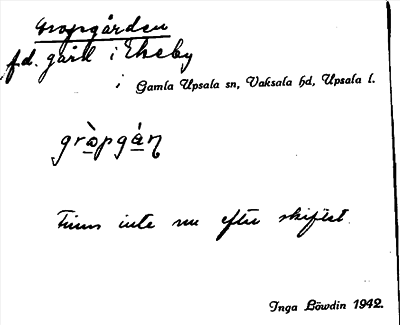 Gropgården
fd. gård i Ekeby
i Gamla Upsala sn, Vaksala hd, Upsala l.
Finns inte nu efter skiftet.
Inga Löwdin 1942.